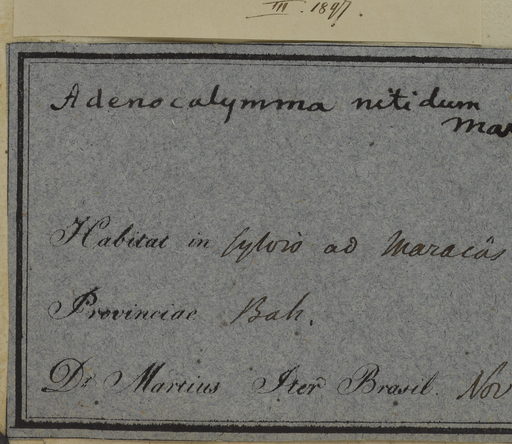 III. 1897.
Adenocalymma nitidum
Mar
Habitat in sylvis ad Maracâs
Provinciae Bah.
Dr. Martius Iter Brasil. Nov